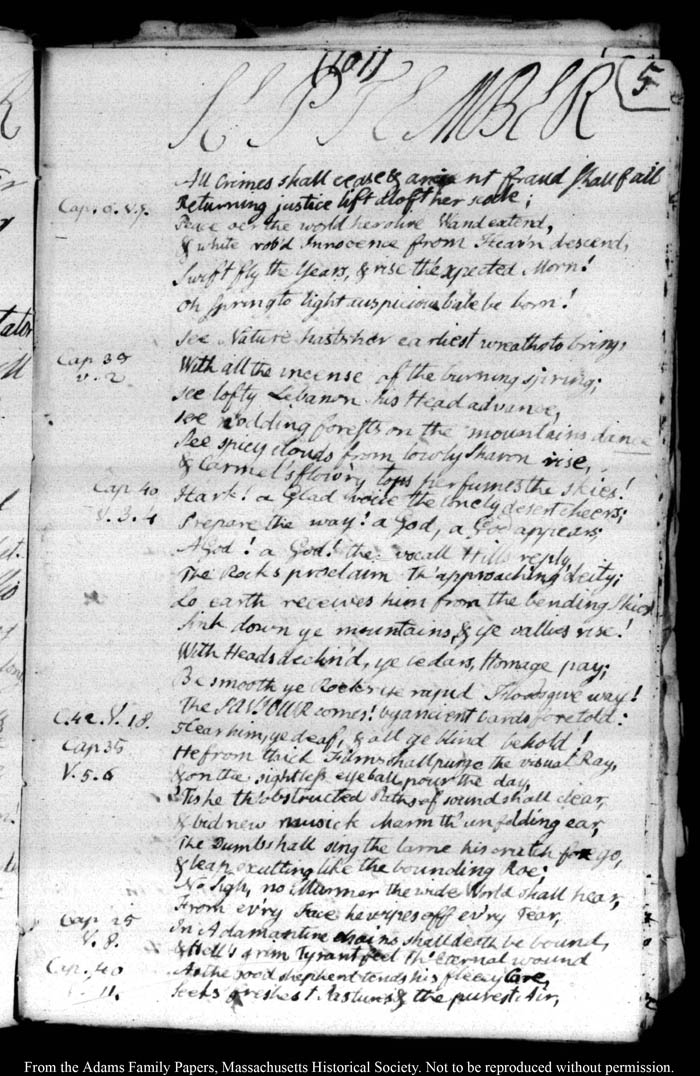 (101)
5
SEPTEMBER
All Crimes shall cease & ancient ffraud shall fail
Returning justice lift aloft her scale;
Cap. 9. V.7.
Peace oer the world her olive Wand extend,
& white rob'd Innocence from Heav'n descend,
Swift fly the Years, & rise th'expected Morn!
Oh Spring to light auspicious babe be born!
See Nature hasts her earliest wreaths to bring,
Cap 35
V. 2
With all the incense of the burning spring;
See lofty Lebanon his Head advance,
see nodding forests on the mountains dance
See spicy clouds from lowly Sharon rise,
& Carmel's flow'ry tops perfumes the skies!
Cap 40
V. 3. 4
Hark! a Glad voice the lonely desert cheers;
Prepare the way! a God, a God appears;
A God! a God! the vocall Hills reply,
The Rocks proclaim th'approaching deity;
Lo earth receives him from the bending Skies
Sink down ye mountains, & ye vallies rise!
With Heads declin'd, ye cedars, Homage pay;
Be smooth ye Rocks ye rapid Floods give way!
The SAVIOUR comes! by ancient bards foretold:
C. 42. V. 18.
Hear him, ye deaf, & all ye blind behold!
Cap 35
V. 5. 6
He from thick Films shall purge the visual Ray,
& on the sightless eyeball pour the day,
'Tis he th'obstructed Paths of sound shall clear,
& bid new musick charm th'unfolding ear,
The Dumb shall sing the lame his cratch forego,
& leap exulting like the bounding Roe;
No Sigh, no Murmer the wide World shall hear,
From ev'ry Face he wipes off ev'ry Tear,
Cap 25
V. 8.
In Adamantine chains shall death be bound,
& Hell's grim Tyrant feel th'Eternal wound
Cap. 40
V. 11.
As the good shepherd tends his fleecy Care,
Seeks freshest Pastures & the purest Air,
From the Adams Family Papers, Massachusetts Historical Society. Not to be reproduced without permission.